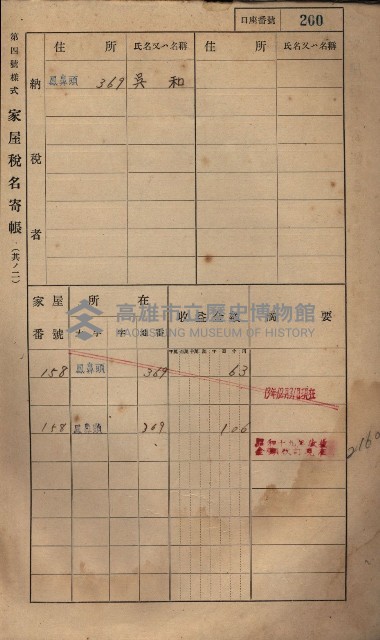 口座番號 260
第四號樣式 家屋稅名寄帳 (其ノ二)
住所 氏名又ハ名稱 住所 氏名又ハ名稱
納稅者
鳳鼻頭 369 吳和
家屋番號 所在 收益金額 摘要
大字 字 地番
高雄市立歷史博物館
KAOHSIUNG MUSEUM OF HISTORY
158 鳳鼻頭 369 63
158 鳳鼻頭 369 106
昭和十九年